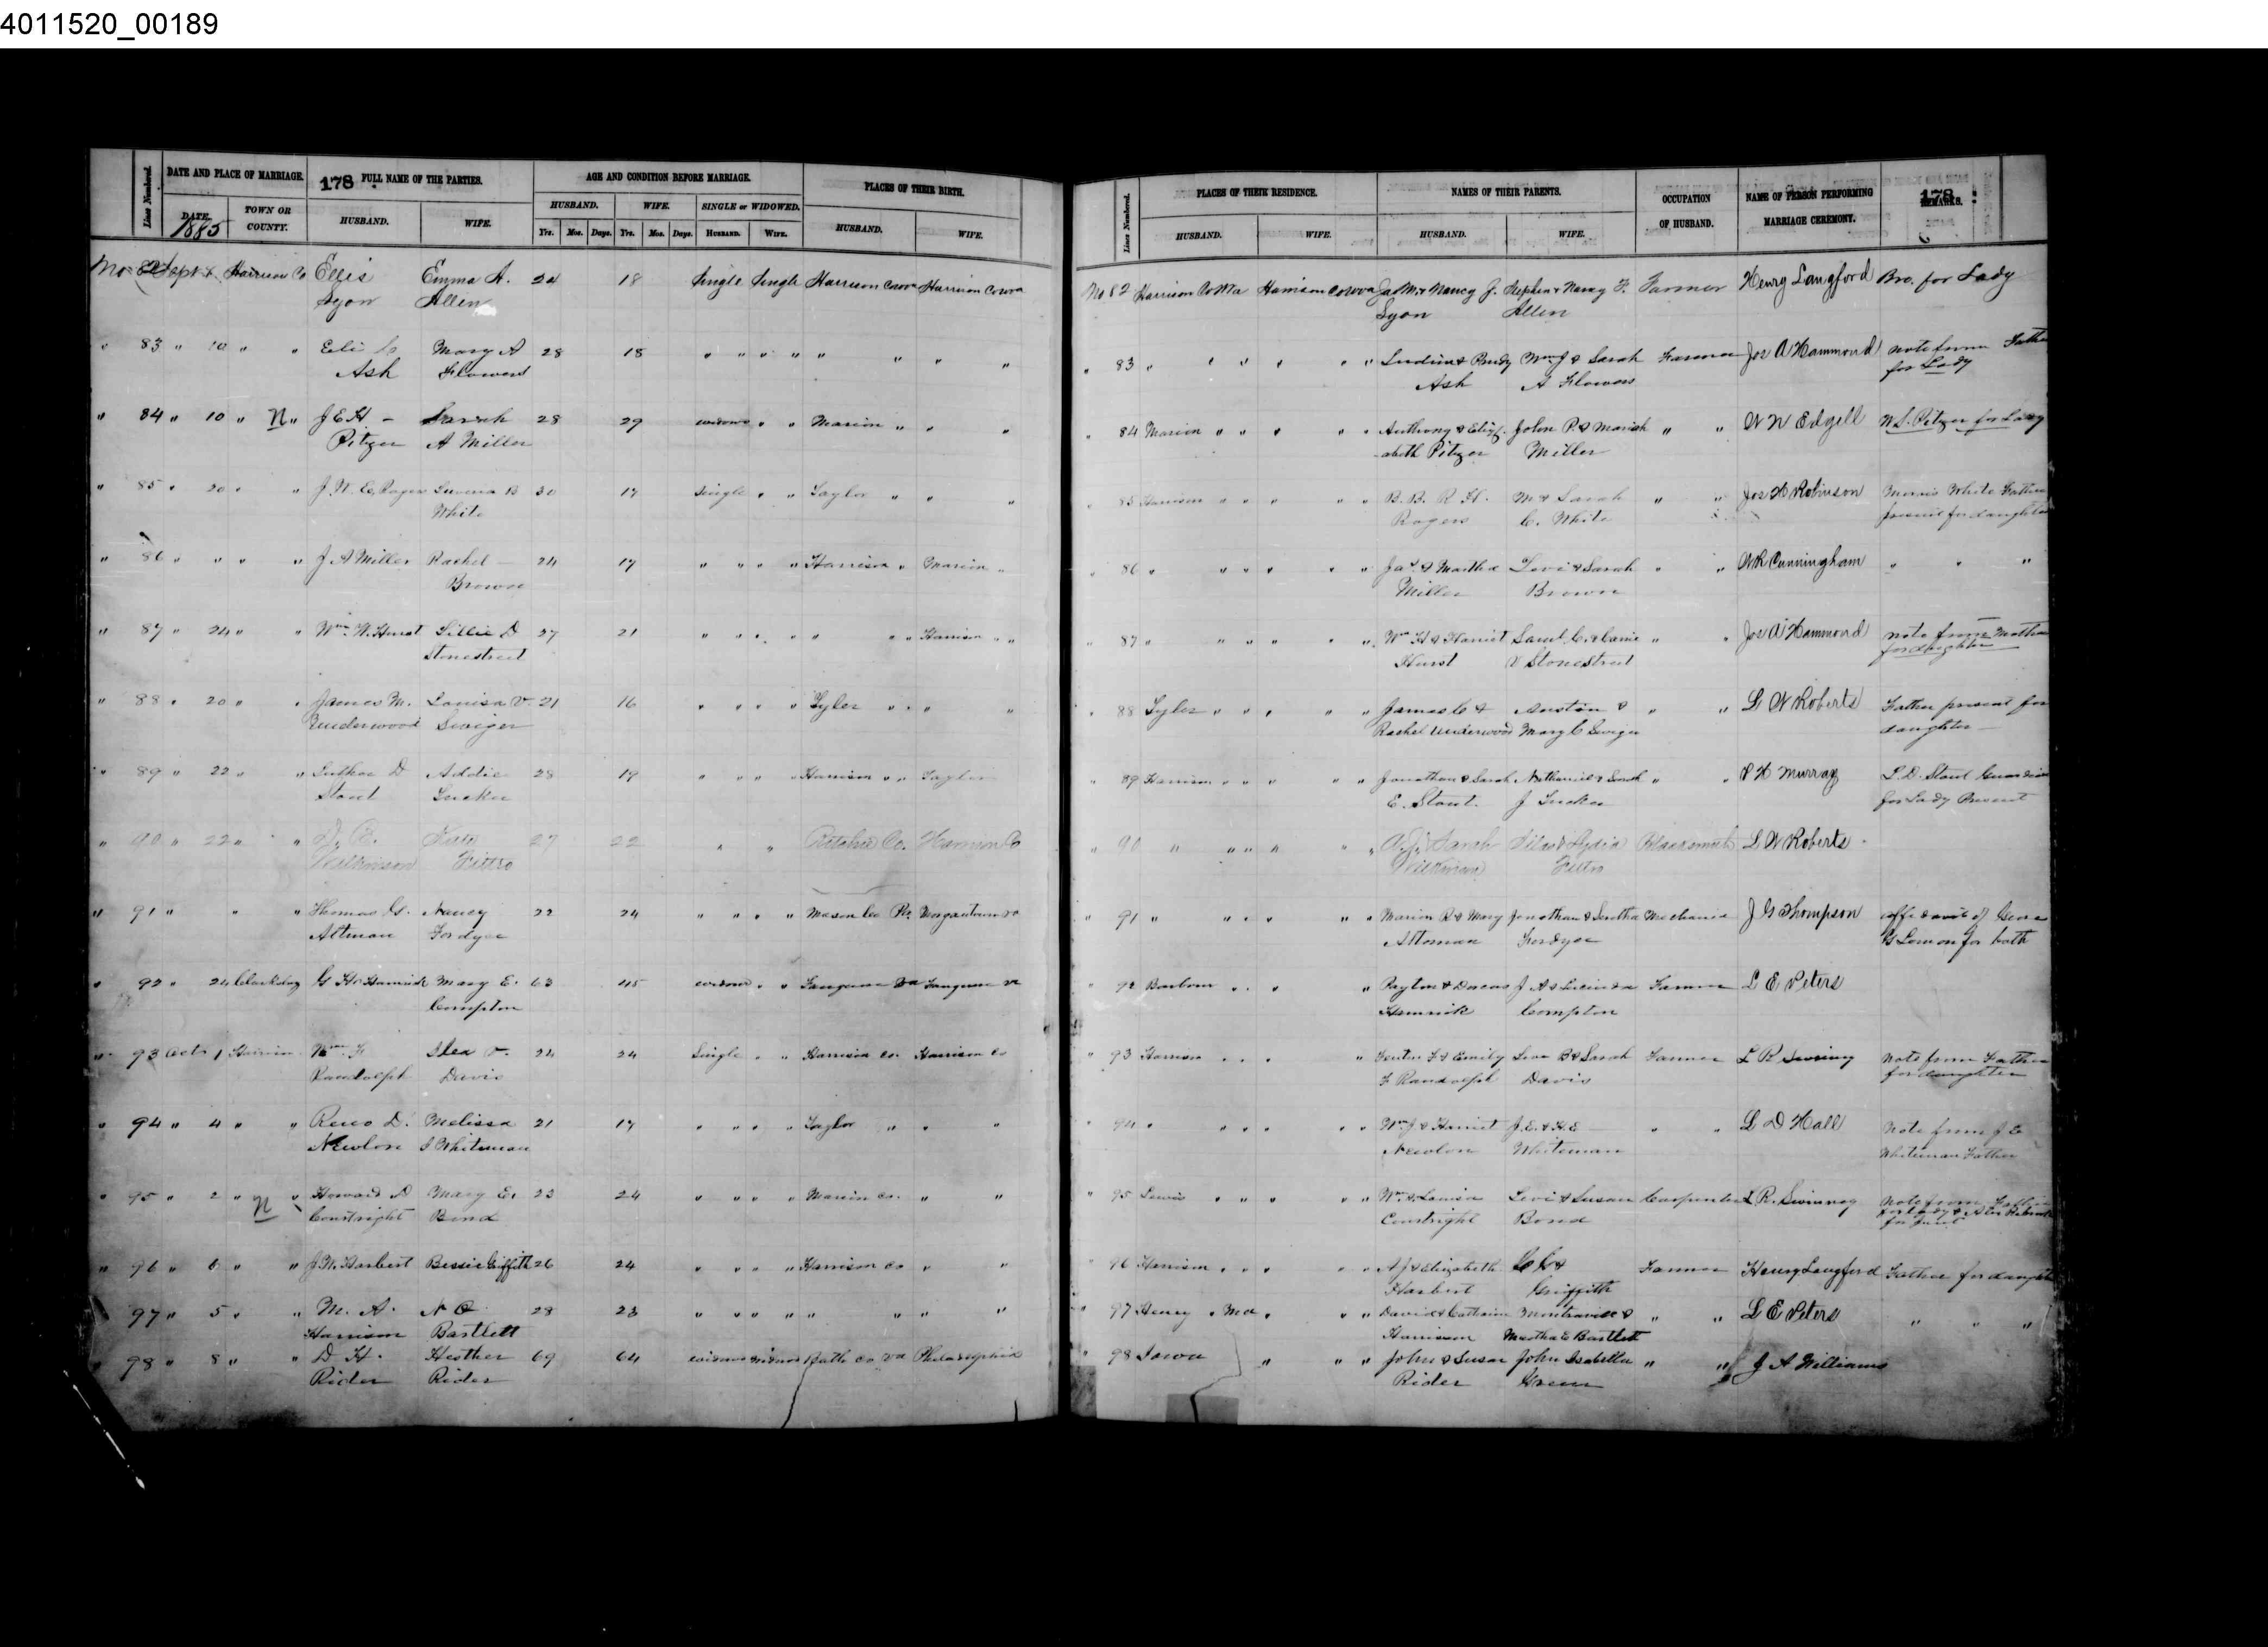 4011520_00189
Lines Numbered. DATE AND PLACE OF MARRIAGE. 178 FULL NAME OF THE PARTIES. AGE AND CONDITION BEFORE MARRIAGE. PLACES OF THEIR BIRTH.
DATE. 1885 TOWN OR COUNTY. HUSBAND. WIFE. HUSBAND. WIFE. SINGLE or WIDOWED. HUSBAND. WIFE.
Yrs. Mos. Days. Yrs. Mos. Days. HUSBAND. WIFE.
No 82 Sept Harrison Co Ellis Emma A. 24 18 Single Single Harrison Co WVa Harrison Co WVa
Lyon Allen
" 83 " 10 " " Eli Mary A 28 18 " " " " " " " "
Ash Flowers
" 84 " 10 " N " J E H - Sarah 28 29 widowed " " Marion " " "
Pitzer A Miller
" 85 " 20 " " J. W. E. Rogers B 30 17 Single " " Taylor " " "
White
" 86 " " " " J A Miller Rachel 24 17 " " " " Harrison " Marion "
Brown
" 87 " 24 " " Wm. W. Hurst Lillie D 27 21 " " " " " " " Harrison " "
Stonestreet
" 88 " 20 " " James M. Louisa V. 21 16 " " " " Tyler " " " "
Underwood Swiger
" 89 " 22 " " Luther D Addie 28 19 " " " " Harrison " " Taylor
Stout Tucker
" 90 " 22 " " Kate 27 22 " " Ritchie Co. Harrison Co
Wilkinson Fittro
" 91 " " " Thomas G. Nancy 22 24 " " " " Mason Co Morgantown
Altman Fordyce
" 92 " 24 Clarksburg G. H. Hamrick Mary E. 63 45 widowed " " Va Va
Compton
" 93 Oct 1 Harrison Wm. F. V. 24 24 Single " " Harrison Co. Harrison Co
Randolph Davis
" 94 " 4 " " Reno D. Melissa 21 17 " " " " Taylor " " "
Newlon S Whiteman
" 95 " 2 " N " Howard D Mary E. 23 24 " " " " Marion Co. " "
Courtright Bond
" 96 " 6 " " J. W. Harbert Bessie Griffith 26 24 " " " " Harrison Co " "
" 97 " 5 " " M. A. N O 28 23 " " " " " " " "
Harrison Bartlett
" 98 " 8 " " D H. Hesther 69 64 widowed widowed Bath Co Va Philadelphia
Rider Rider
Lines Numbered. PLACES OF THEIR RESIDENCE. NAMES OF THEIR PARENTS. OCCUPATION OF HUSBAND. NAME OF PERSON PERFORMING MARRIAGE CEREMONY. 178 REMARKS.
HUSBAND. WIFE. HUSBAND. WIFE.
No 82 Harrison Co WVa Harrison Co WVa Jas M. & Nancy J. Stephen & Nancy F. Farmer Henry Langford Bro. for Lady
Lyon Allen
" 83 " " " " " " Wm J & Sarah Farmer Jos A Hammond note from Father
Ash A Flowers for Lady
" 84 Marion " " " " " Anthony & Eliz- John P. & Mariah " " W W Edgell W S. Pitzer for Lady
abeth Pitzer Miller
" 85 Harrison " " " " " B. B. R H. M & Sarah " " Jos H Robinson Morris White Father
Rogers C. White present for daughter
" 86 " " " " " " Jas & Martha Levi & Sarah " " W R Cunningham " " "
Miller Brown
" 87 " " " " " " Wm H & Harriet Saml C. & Carrie " " Jos A Hammond note from Mother
Hurst V Stonestreet for daughter
" 88 Tyler " " " " " James C & Austin & " " L W Roberts Father present for
Rachel Underwood Mary C Swiger daughter
" 89 Harrison " " " " " Jonathan & Sarah Nathaniel & Sarah " " P H Murray L. D. Stout Guardian
E. Stout. J Tucker for Lady Present
" 90 " " " " " " A. J. & Sarah Silas & Lydia Blacksmith L W Roberts
Wilkinson Fittro
" 91 " " " " " " Marion R & Mary Jonathan & Mechanic J G Thompson affidavit of
Altman Fordyce G Lemon for both
" 92 Barbour " " " " Peyton & Dorcas J. A & Lucinda Farmer L E Peters
Hamrick Compton
" 93 Harrison " " " " & Emily & Sarah Farmer L R Swinney note from Father
F Randolph Davis for daughter
" 94 " " " " " " Wm J & Harriet J. E. & H E " " L D Hall note from J E
Newlon Whiteman Whiteman Father
" 95 Lewis " " " " " Wm & Louisa Levi & Susan Carpenter L R. Swinney note from Father
Courtright Bond for Lady
" 96 Harrison " " " " " A J & Elizabeth Farmer Henry Langford Father for daughter
Harbert Griffith
" 97 Henry " Mo " " " David & Catharine & " " L E Peters " " "
Harrison Martha E Bartlett
" 98 Iowa " " " John & Susan John Isabella " " J A Williams
Rider Green